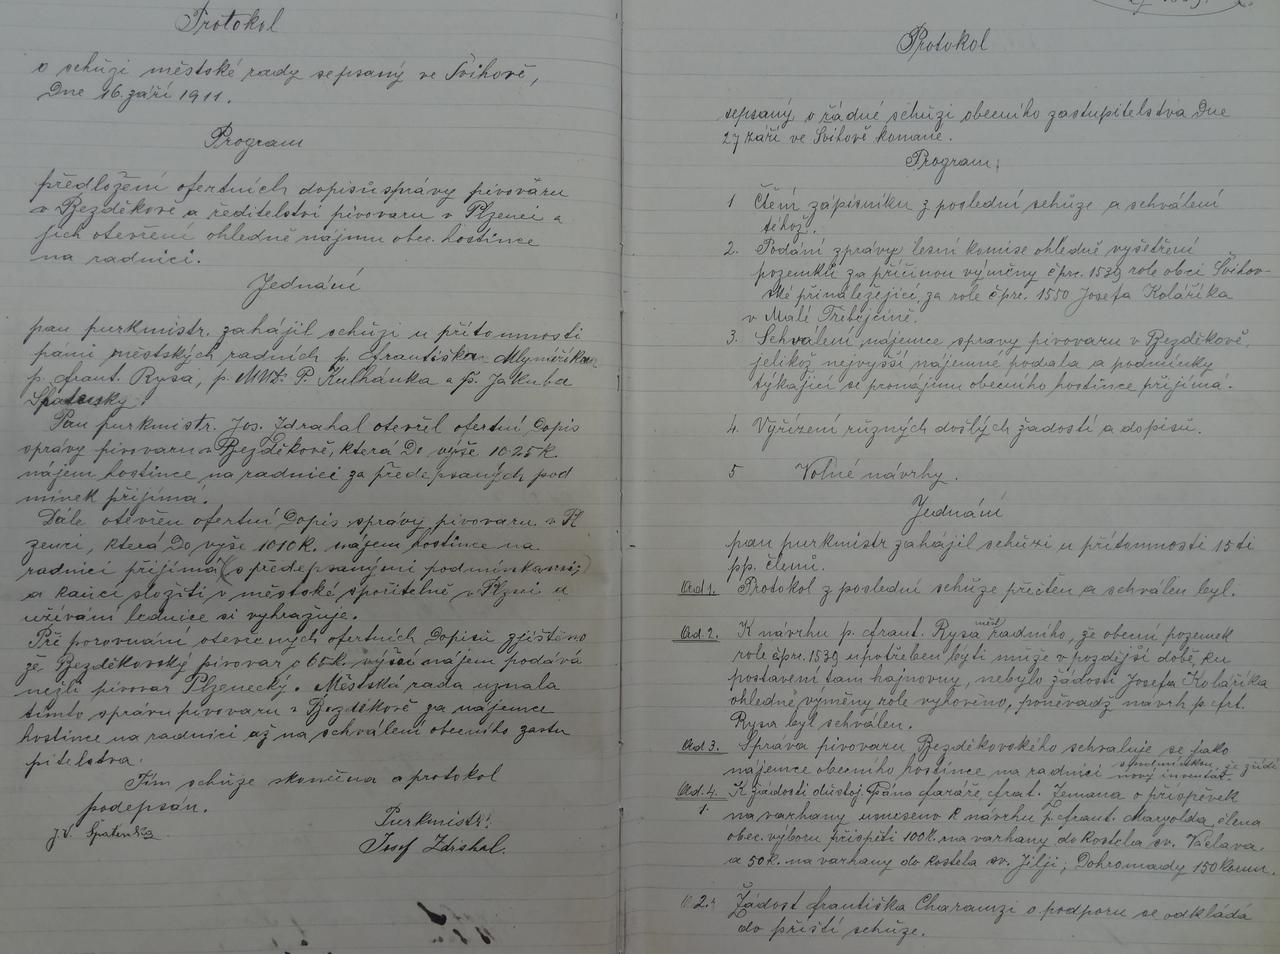 Protokol
o schůzi městské rady sepsaný ve Švihově,
Dne 16. září 1911.
Program
předložení ofertních dopisů správy pivováru
v Bezděkově a ředitelství pivovaru v Plzenci a
jich otevření ohledně nájmu obec. hostince
na radnici.
Jednání
pan purkmistr. zahájil schůzi u přítomnosti
pánů městských radních p. Františka Mlynaříka
p. Frant. Rysa, p. MUDr. P. Kulhánka a p. Jakuba
Špatenky.
Pan purkmistr. Jos. Zdrahal otevřel ofertní Dopis
správy pivovaru v Bezděkově, která Do výše 1025 K.
nájem hostince na radnici za předepsaných pod
mínek přijíma.
Dále otevřen ofertní Dopis správy pivovaru v Pl
zenci, která Do výše 1010 K. nájem hostince na
radnici přijímá (s předepsanými podmínkami)
a kauci složiti v městské spořitelně v Plzni a
užívání lednice si vyhražuje.
Při porovnání otevřených ofertních Dopisů zjištěno
že Bezděkovský pivovar o 65 K. výšší nájem podává
nežli pivovar Plzenecký. Městská rada uznala
tímto správu pivovaru v Bezděkově za nájemce
hostince na radnici až na schválení obecního zastu
pitelstva.
Tím schůze skončena a protokol
podepsán.
Purkmistr:
J. Špatenka
Josef Zdrahal.
Protokol
sepsaný o řádné schůzi obecního zastupitelstva Dne
27 září ve Švihově konané.
Program;
1 Čtení zápisníku z poslední schůze a schválení
téhož.
2. Podání zprávy lesní komise ohledně vyšetření
pozemků za příčinou výměny č. prc. 1539 role obci Švihov-
ské přináležející za role č. prc. 1550 Josefa Koláříka
v Malé Třebýcině.
3. Schválení nájemce správy pivovaru v Bezděkově,
jelikož nejvyšší nájemné podala a podmínky
týkající se pronájmu obecního hostince přijímá.
4. Vyřízení různých došlých žádostí a dopisů.
5 Volné návrhy.
Jednání
pan purkmistr zahájil schůzi u přítomnosti 15ti
pp. členů.
Ad 1. Protokol z poslední schůze přečten a schválen byl.
Ad. 2. K návrhu p. Frant. Rysa měst radního, že obecní pozemek
role č. prc. 1539 upotřeben býti může v pozdější době ku
postavení tam hajnovny, nebylo žádosti Josefa Koláříka
ohledně výměny role vyhověno, poněvadž návrh p. Frt.
Rysa byl schválen.
Ad 3. Správa pivovaru Bezděkovského schvaluje se jako
nájemce obecního hostince na radnici s podmínkou, že zřídí
nový inventář.
Ad. 4. K žádosti důstoj. Pána faráře Frat. Zemana o příspěvek
1. na varhany usneseno k návrhu p. Frant. Maryolda člena
obec. výboru přispěti 100 K. na varhany do kostela sv. Václava.
a 50 K. na varhany do kostela sv. Jiljí; Dohromady 150 korun.
2. Žádost Františka Charamzi o podporu se odkládá
do příští schůze.